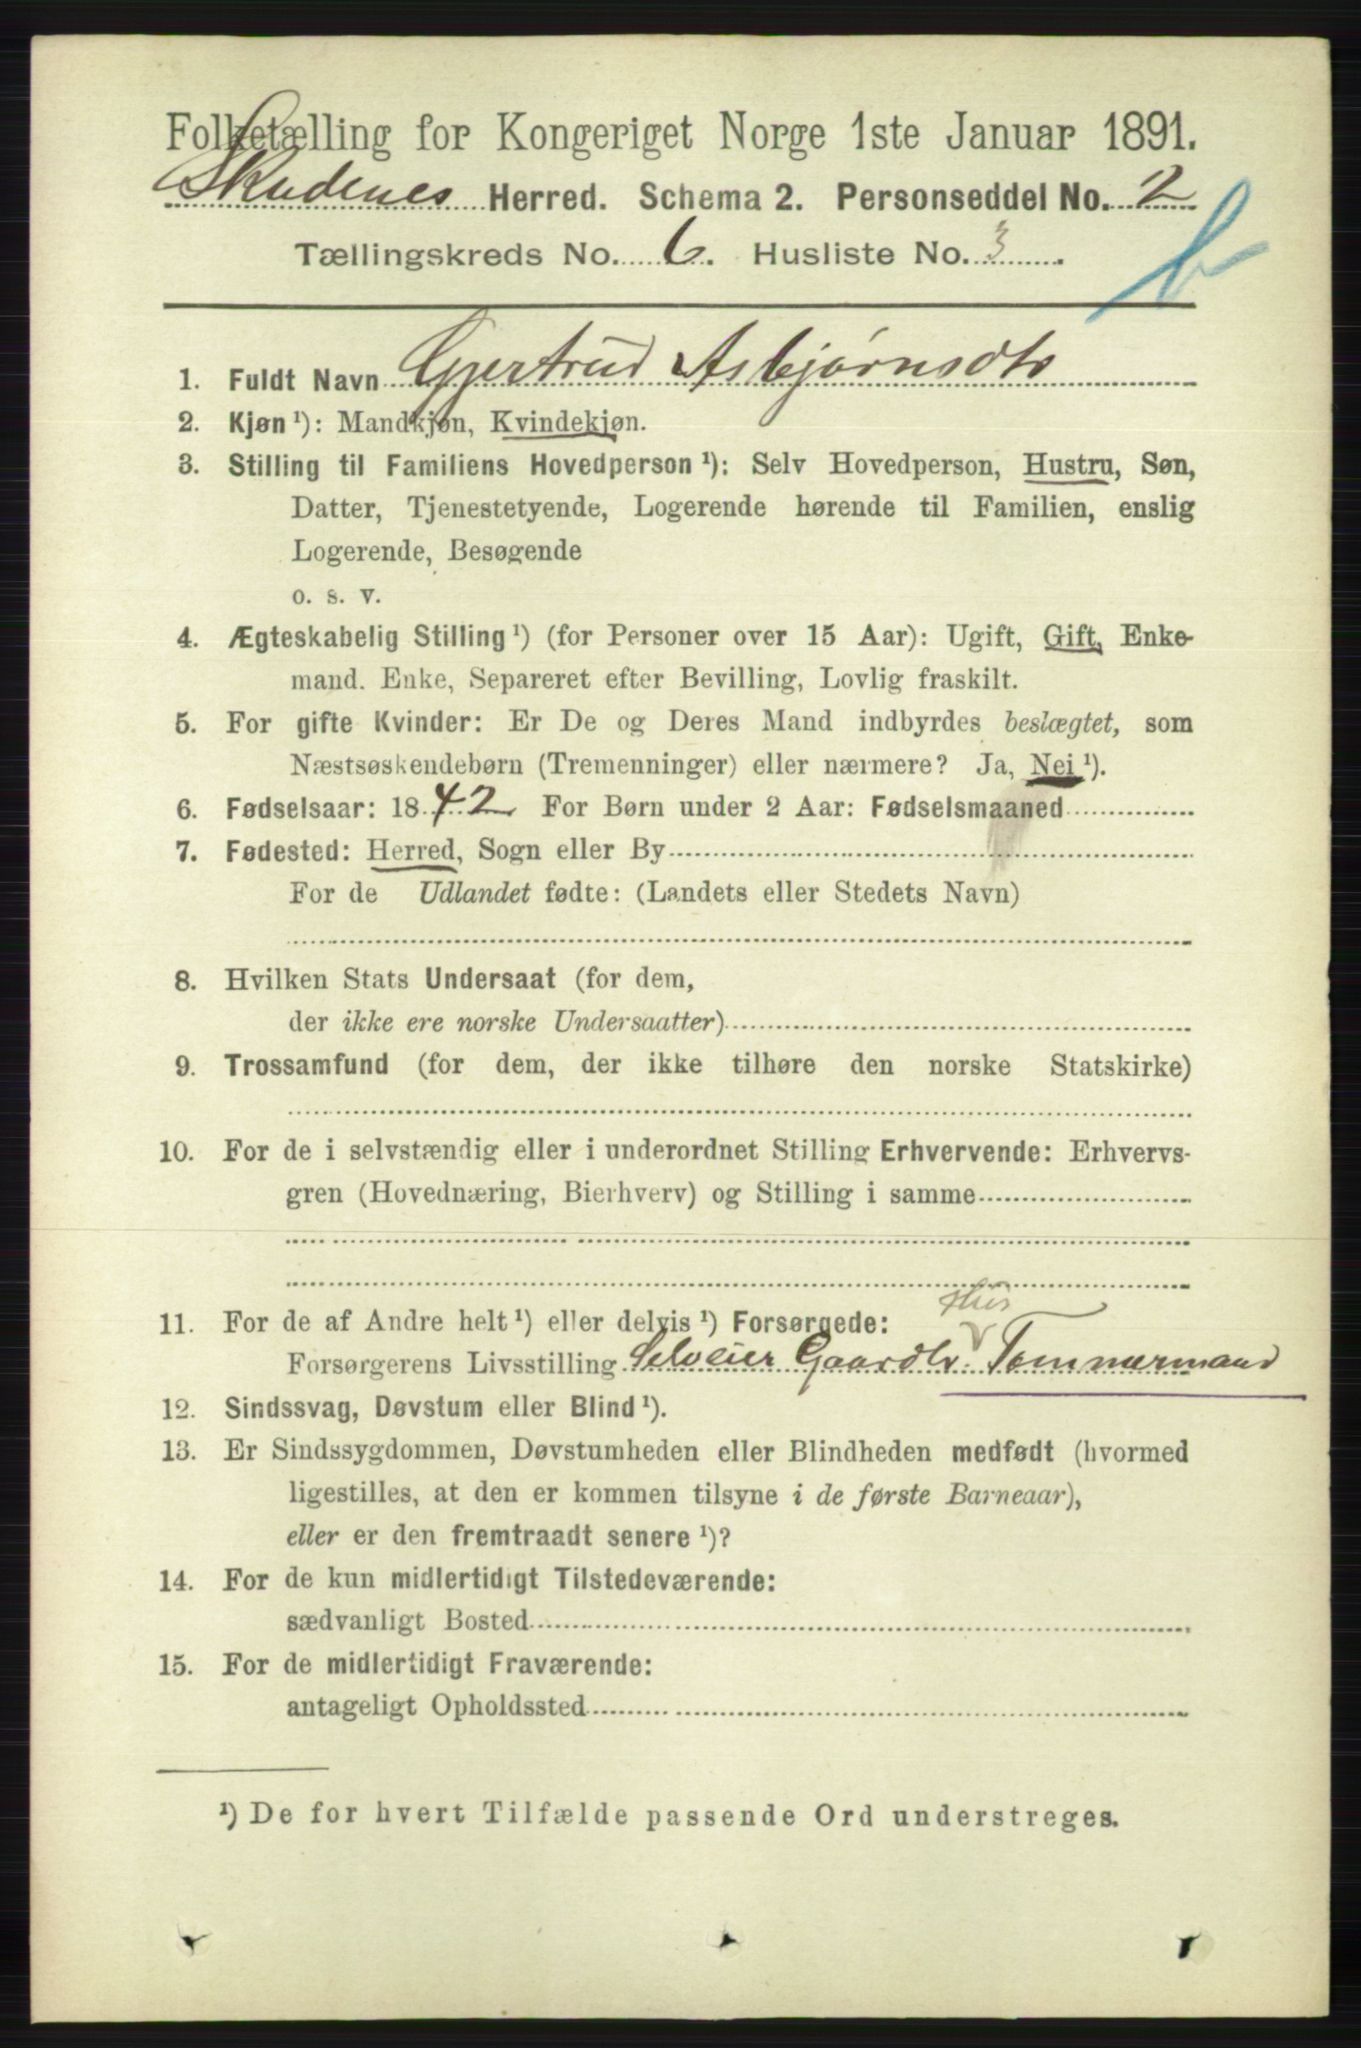 Folketælling for Kongeriget Norge 1ste Januar 1891.
Skudenes Herred. Schema 2. Personseddel No. 2
Tællingskreds No. 6. Husliste No. 3.
b
1. Fuldt Navn Gjertrud Asbjørnsdtr
2. Kjøn ¹): Mandkjøn, Kvindekjøn.
3. Stilling til Familiens Hovedperson ¹): Selv Hovedperson, Hustru, Søn,
Datter, Tjenestetyende, Logerende hørende til Familien, enslig
Logerende, Besøgende
o. s. v.
4. Ægteskabelig Stilling ¹) (for Personer over 15 Aar): Ugift, Gift, Enke-
mand. Enke, Separeret efter Bevilling, Lovlig fraskilt.
5. For gifte Kvinder: Er De og Deres Mand indbyrdes beslægtet, som
Næstsøskendebørn (Tremenninger) eller nærmere? Ja, Nei ¹).
6. Fødselsaar: 1842 For Børn under 2 Aar: Fødselsmaaned
7. Fødested: Herred, Sogn eller By
For de Udlandet fødte: (Landets eller Stedets Navn)
8. Hvilken Stats Undersaat (for dem,
der ikke ere norske Undersaatter)
9. Trossamfund (for dem, der ikke tilhøre den norske Statskirke)
10. For de i selvstændig eller i underordnet Stilling Erhvervende: Erhvervs-
gren (Hovednæring, Bierhverv) og Stilling i samme
Hus
11. For de af Andre helt ¹) eller delvis ¹) Forsørgede:
Forsørgerens Livsstilling Selveier Gaardbr Tømmermand
12. Sindssvag, Døvstum eller Blind ¹).
13. Er Sindssygdommen, Døvstumheden eller Blindheden medfødt (hvormed
ligestilles, at den er kommen tilsyne i de første Barneaar),
eller er den fremtraadt senere ¹)?
14. For de kun midlertidigt Tilstedeværende:
sædvanligt Bosted
15. For de midlertidigt Fraværende:
antageligt Opholdssted
¹) De for hvert Tilfælde passende Ord understreges.